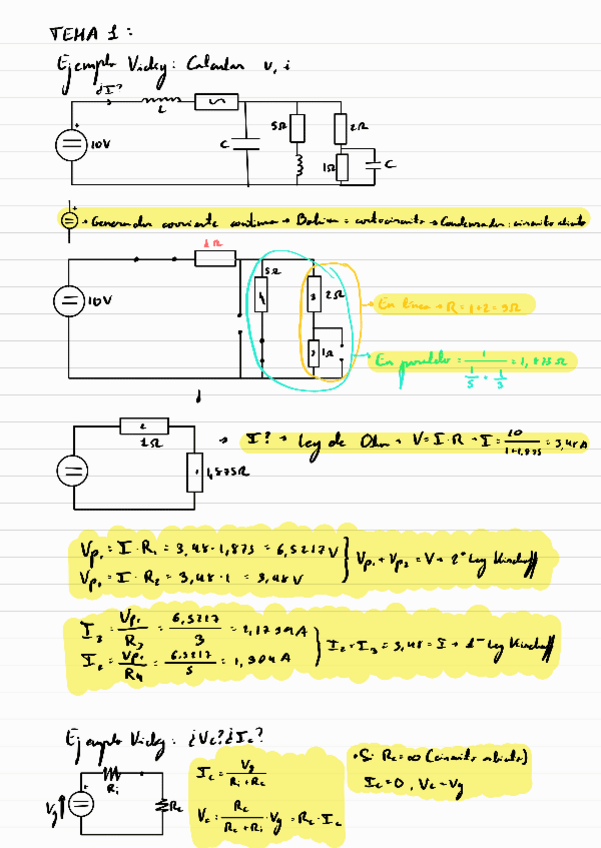 TEMA 1:
Ejemplo Vicky: Calcular v, i
¿I?
L
10V
C
5Ω
2Ω
1Ω
C
+ → Generador corriente continua → Bobina = cortocircuito → Condensador: circuito abierto
1Ω
10V
5Ω
2Ω
1Ω
En línea → R = 1+2 = 3Ω
En paralelo = 1 / (1/5 + 1/3) = 1,875Ω
1Ω
1,875Ω
→ I? → Ley de Ohm → V = I·R → I = 10/(1+1,875) = 3,48A
Vp₁ = I·R₁ = 3,48·1,875 = 6,5217V
Vp₁ = I·R₂ = 3,48·1 = 3,48V
Vp₁ + Vp₂ = V → 2ª Ley Kirchoff
I₃ = Vp₁/R₃ = 6,5217/3 = 2,1739A
I₂ = Vp₁/R₄ = 6,5217/5 = 1,304A
I₂ + I₃ = 3,48 = I → 1ª Ley Kirchoff
Ejemplo Vicky: ¿Vc? ¿Ic?
Vg
Ri
Rc
Ic = Vg/(Ri+Rc)
Vc = Rc/(Rc+Ri) · Vg = Rc·Ic
• Si Rc = ∞ (circuito abierto)
Ic = 0, Vc = Vg